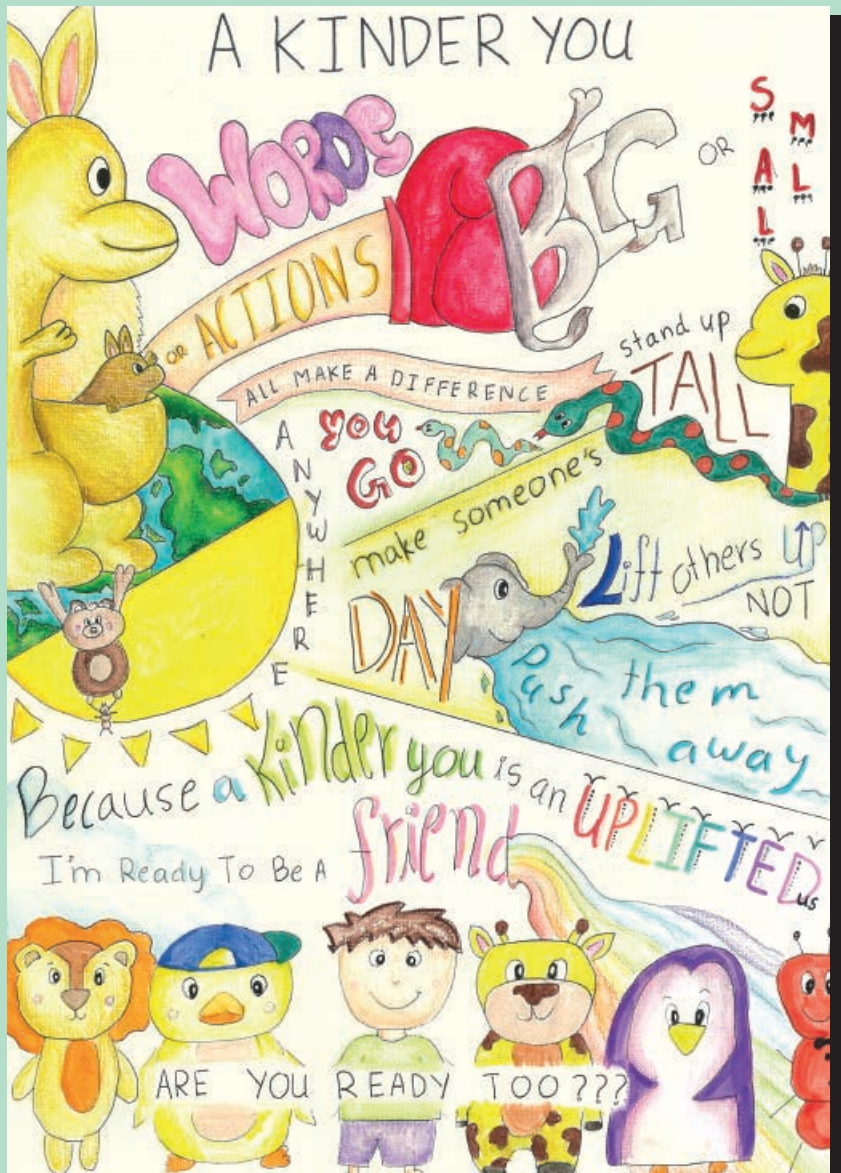 A KINDER YOU
WORDS
OR ACTIONS
BIG
OR
SMALL
ALL MAKE A DIFFERENCE
ANYWHERE
YOU
GO
stand up
TALL
make someone's
DAY
Lift others UP
NOT
Push them
away
Because a kinder you is an UPLIFTED us
I'm Ready To Be A friend
ARE YOU READY TOO???